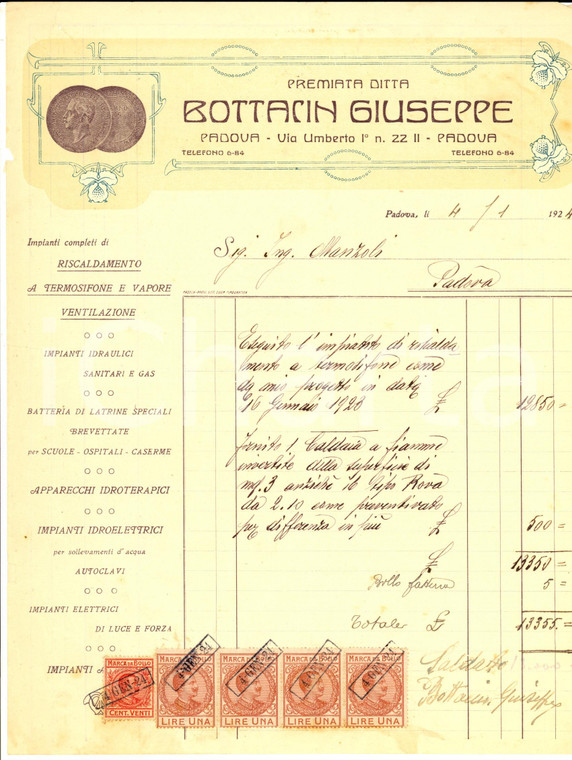 PREMIATA DITTA
BOTTACIN GIUSEPPE
PADOVA - Via Umberto Iº n. 22 II - PADOVA
TELEFONO 6-84
TELEFONO 6-84
Padova, li 4/1 1924
Sig. Ing. Manzoli
Padova
Impianti completi di
RISCALDAMENTO
A TERMOSIFONE E VAPORE
VENTILAZIONE
IMPIANTI IDRAULICI
SANITARI E GAS
BATTERIA DI LATRINE SPECIALI
BREVETTATE
per SCUOLE - OSPITALI - CASERME
APPARECCHI IDROTERAPICI
IMPIANTI IDROELETTRICI
per sollevamenti d'acqua
AUTOCLAVI
IMPIANTI ELETTRICI
DI LUCE E FORZA
IMPIANTI
Eseguito l'impianto di riscalda
mento a termosifone come
da mio progetto in data
16 Gennaio 1923 £ 12850 =
Fornito 1 Caldaia a fiamme
invertite della superficie di
mq. 3 anzichè
da 2.10 come preventivato
per differenza in più £ 500 =
£ 13350 =
Bollo fattura 5 =
Totale £ 13355 =
MARCA DA BOLLO
CENT. VENTI
4 GEN 24
MARCA DA BOLLO
LIRE UNA
4 GEN 24
MARCA DA BOLLO
LIRE UNA
4 GEN 24
MARCA DA BOLLO
LIRE UNA
4 GEN 24
MARCA DA BOLLO
LIRE UNA
4 GEN 24
Saldato
Bottacin Giuseppe